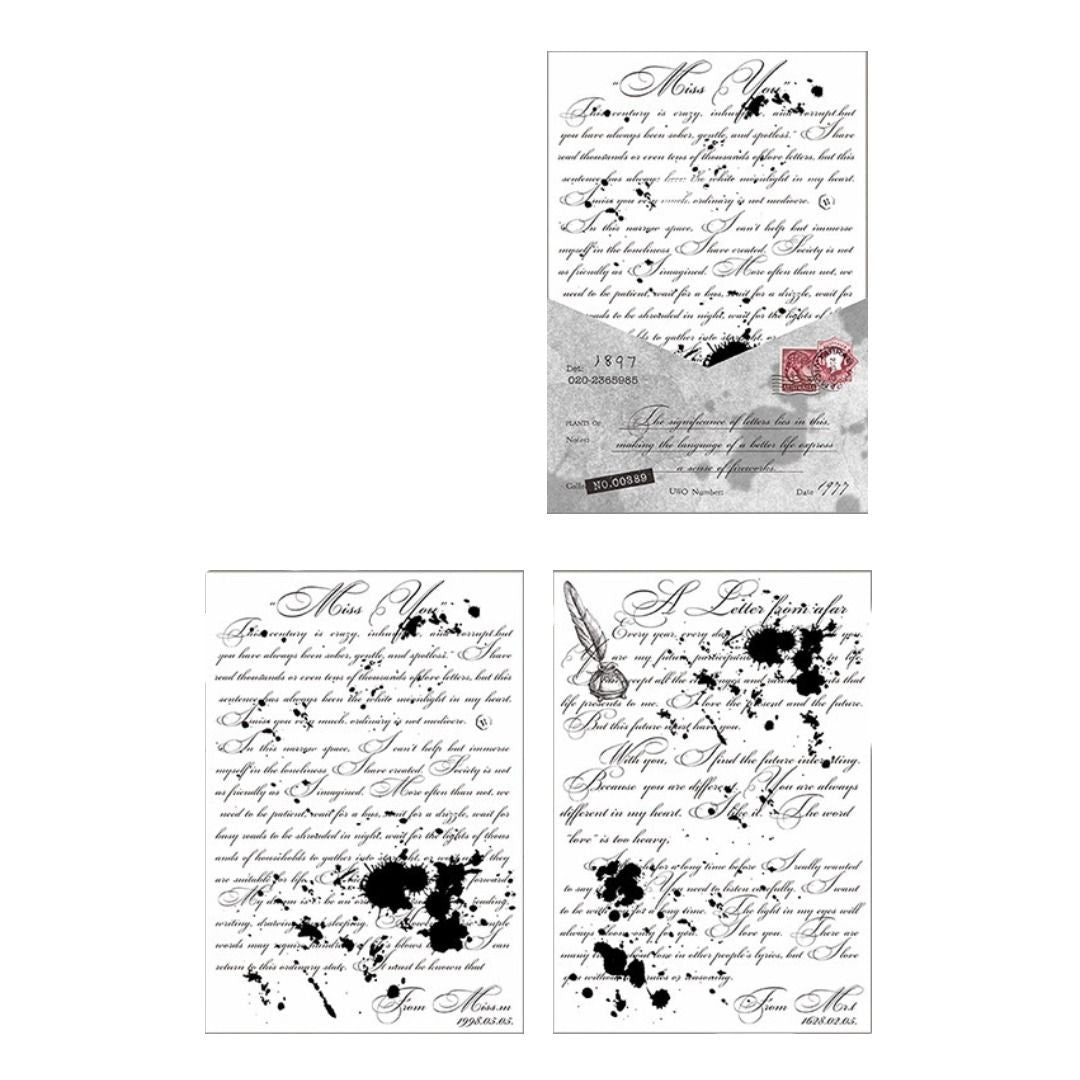 "Miss You"
This century is crazy, and corrupt, but
you have always been sober, gentle, and spotless." I have
read thousands or even tens of thousands of love letters, but this
sentence has always been the white moonlight in my heart.
I miss you very much, ordinary is not mediocre.
In this narrow space, I can't help but immerse
myself in the loneliness I have created. Society is not
as friendly as I imagined. More often than not, we
need to be patient, wait for a bus, wait for a drizzle, wait for
roads to be shrouded in night, wait for the lights of
to gather into starlight, or
Det: 1897
020-2365985
PLANTS OF The significance of letters lies in this,
Notes: making the language of a better life express
a sense of fireworks.
Colle NO.00389 UWO Number: Date 1977
"Miss You"
This century is crazy, and corrupt, but
you have always been sober, gentle, and spotless." I have
read thousands or even tens of thousands of love letters, but this
sentence has always been the white moonlight in my heart.
I miss you very much, ordinary is not mediocre.
In this narrow space, I can't help but immerse
myself in the loneliness I have created. Society is not
as friendly as I imagined. More often than not, we
need to be patient, wait for a bus, wait for a drizzle, wait for
busy roads to be shrouded in night, wait for the lights of thous
ands of households to gather into starlight, or they
are suitable for life. forward
My dream is to be an reading,
writing, drawing, and sleeping. couple
words may require blows I can
return to this ordinary state. It must be known that
From Miss.m
1998.05.05.
A Letter from afar
Every year, every day you.
You are my future participant in life.
accept all the changes and that
life presents to me. I love the present and the future.
But this future must have you.
With you, I find the future interesting.
Because you are different. You are always
different in my heart. I like it. The word
"love" is too heavy,
for a long time before I really wanted
to say You need to listen carefully. I want
to be with for a long time. The light in my eyes will
always only for you. I love you. There are
many about love in other people's lyrics, but I love
you without rules or reasoning.
From Mr.t
1628.02.05.